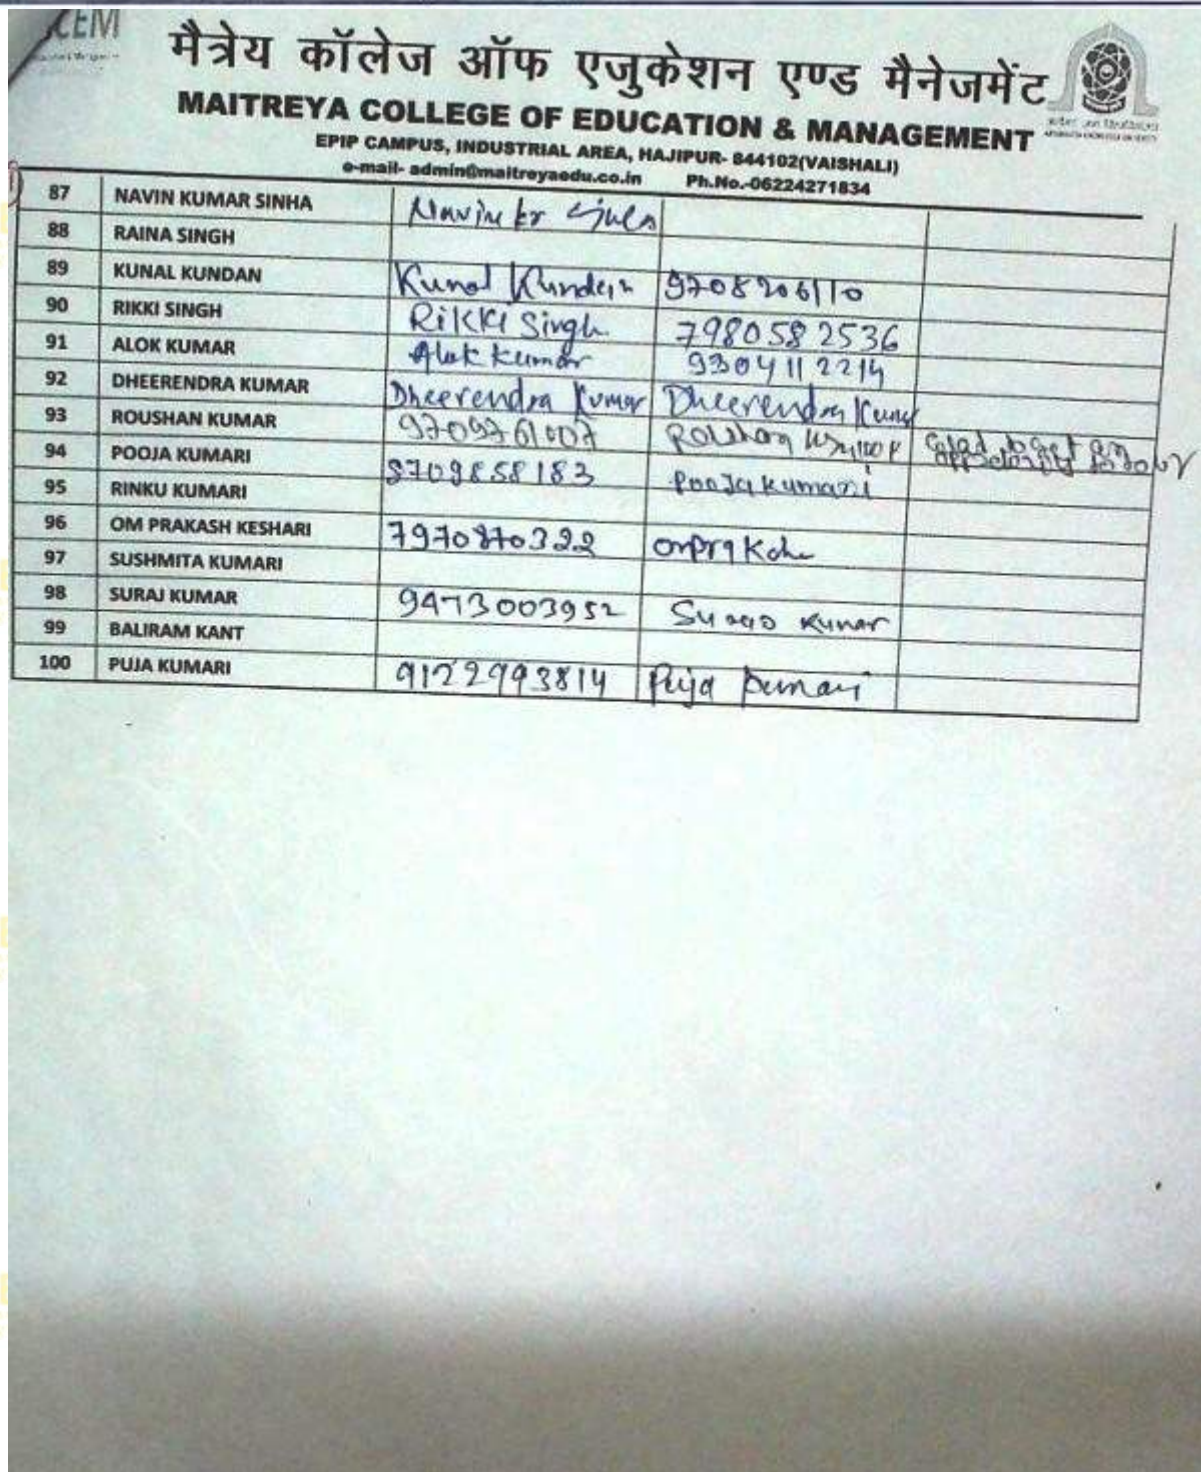 CEM
मैत्रेय कॉलेज ऑफ एजुकेशन एण्ड मैनेजमेंट
MAITREYA COLLEGE OF EDUCATION & MANAGEMENT
EPIP CAMPUS, INDUSTRIAL AREA, HAJIPUR- 844102(VAISHALI)
e-mail- admin@maitreyaedu.co.in Ph.No.-06224271834
87 NAVIN KUMAR SINHA Navin kr
88 RAINA SINGH
89 KUNAL KUNDAN Kunal Kundan 9708206110
90 RIKKI SINGH Rikki Singh 7980582536
91 ALOK KUMAR Alok kumar 9304112214
92 DHEERENDRA KUMAR Dheerendra Kumar Dheerendra Kumar
93 ROUSHAN KUMAR 9709761007
94 POOJA KUMARI 8709858183 Pooja kumari
95 RINKU KUMARI
96 OM PRAKASH KESHARI 7970870322
97 SUSHMITA KUMARI
98 SURAJ KUMAR 9473003952 Kumar
99 BALIRAM KANT
100 PUJA KUMARI 9122993814 Puja kumari